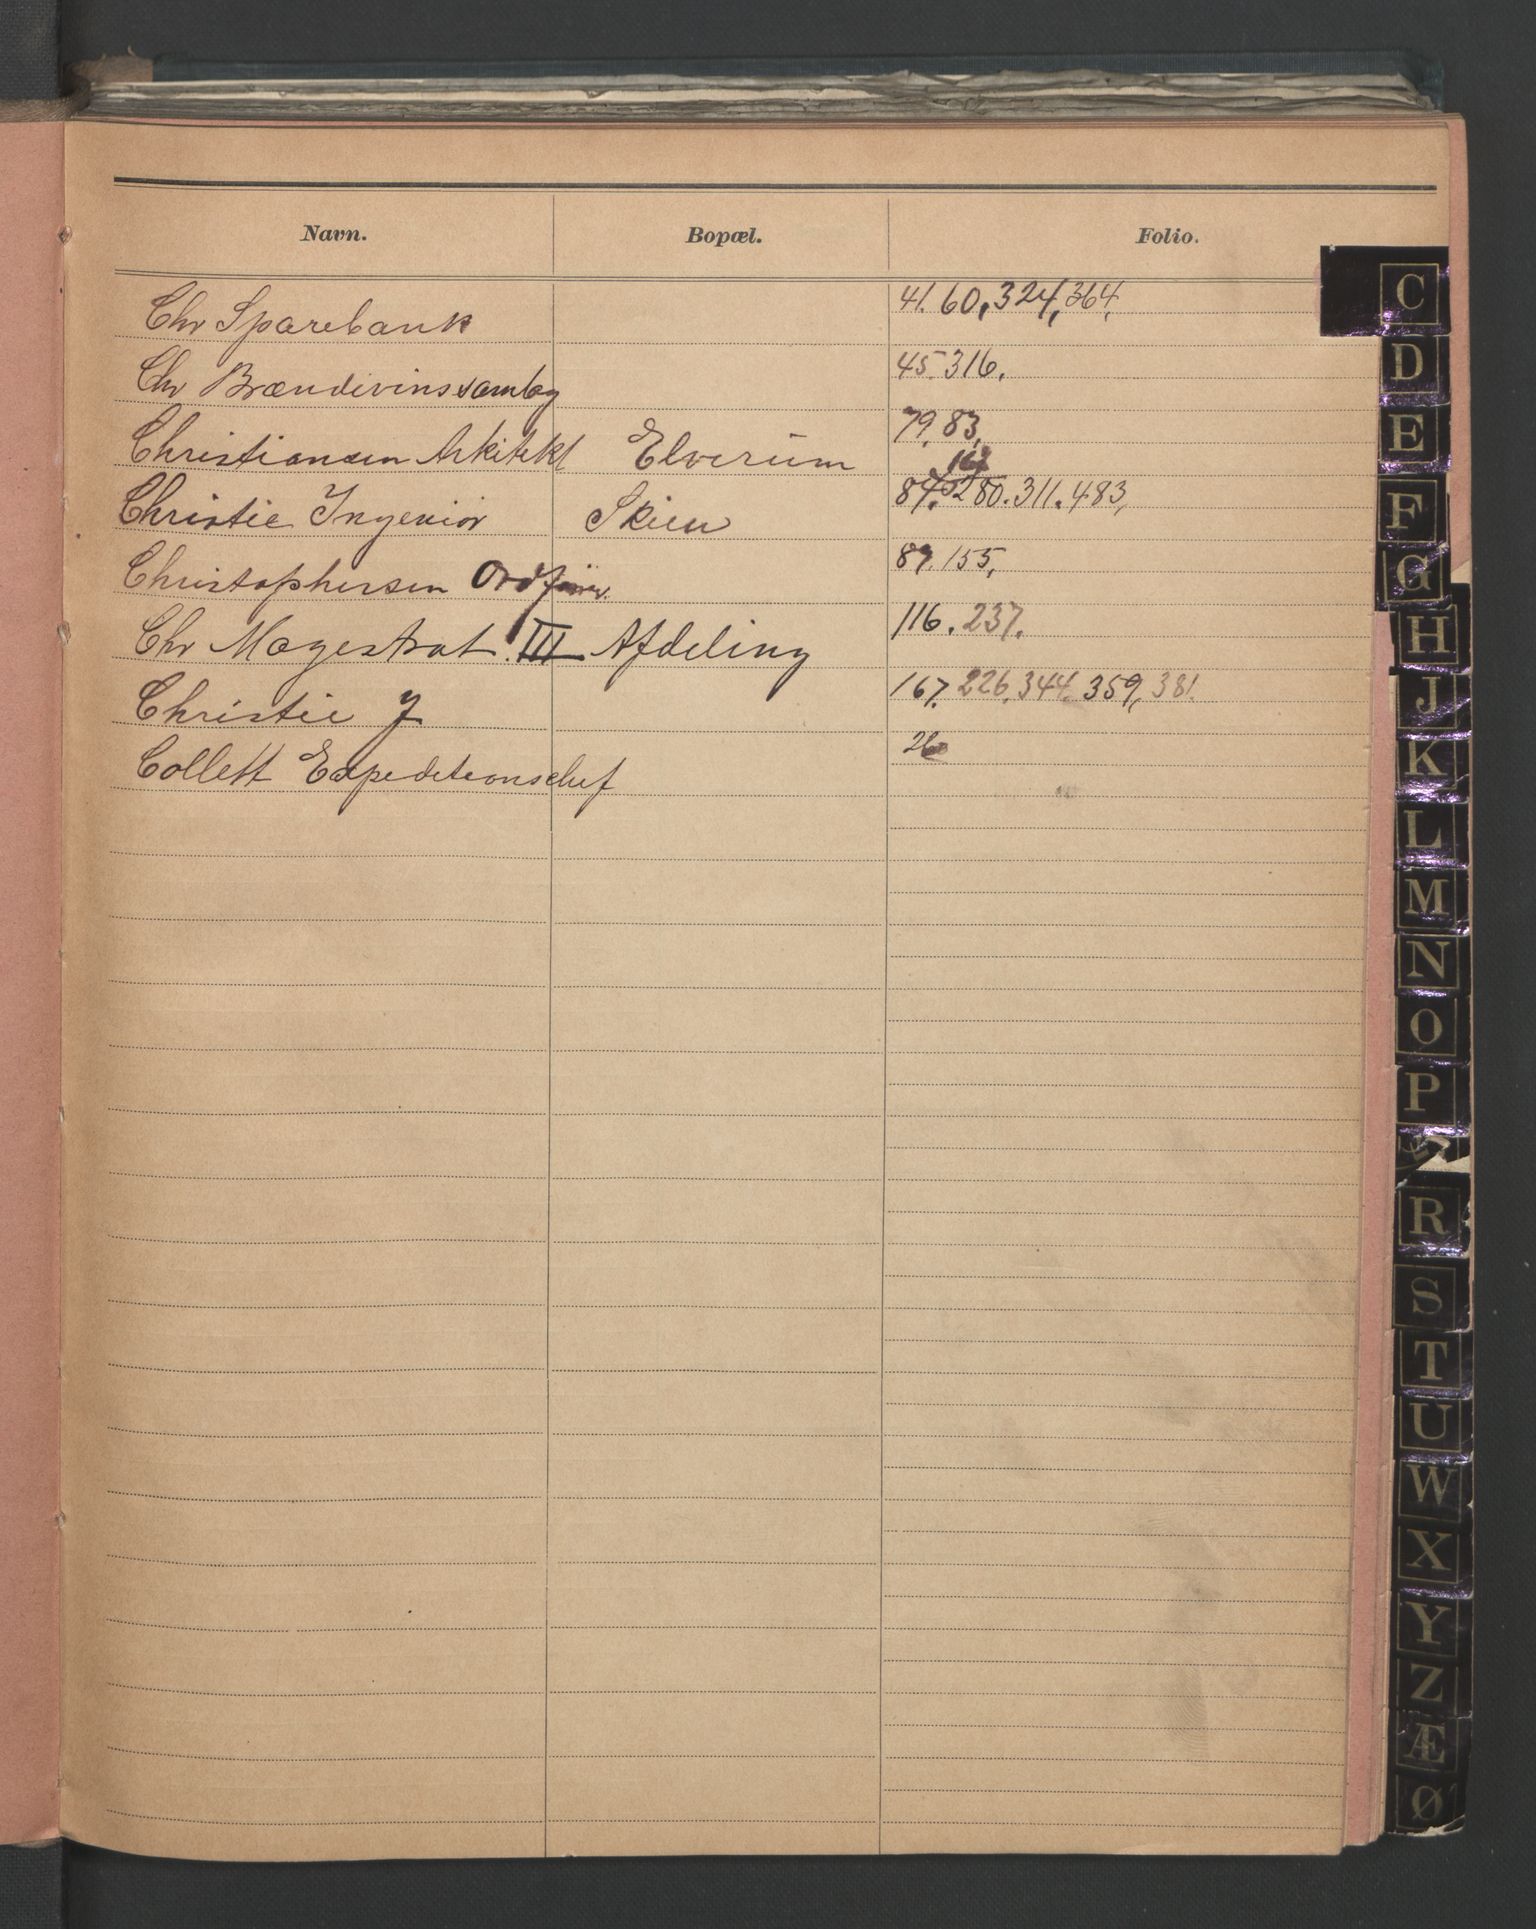 Navn. Bopæl. Folio.
Chr Sparebank 41. 60, 324, 364,
Chr Brændevinssamlag 45. 316.
Christiansen Arkitekt Elverum 79, 83,
167
Christie Ingeniör Skien 84. 280. 311. 483,
Christophersen Ordförer. 155,
Chr Magestrat. III Afdeling 116. 237.
Christie J 167. 226. 344. 359, 381.
Collett Expeditionschef
C
D
E
F
G
H
J
K
L
M
N
O
P
R
S
T
U
W
X
Y
Z
Æ
Ø